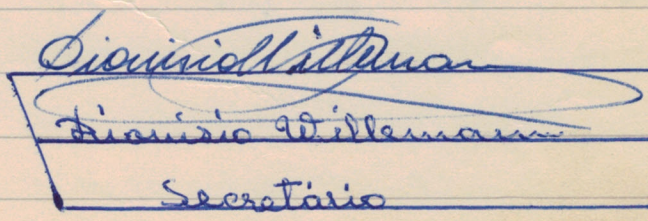 Dionisio Willemann
Dionisio Willemann
Secretário